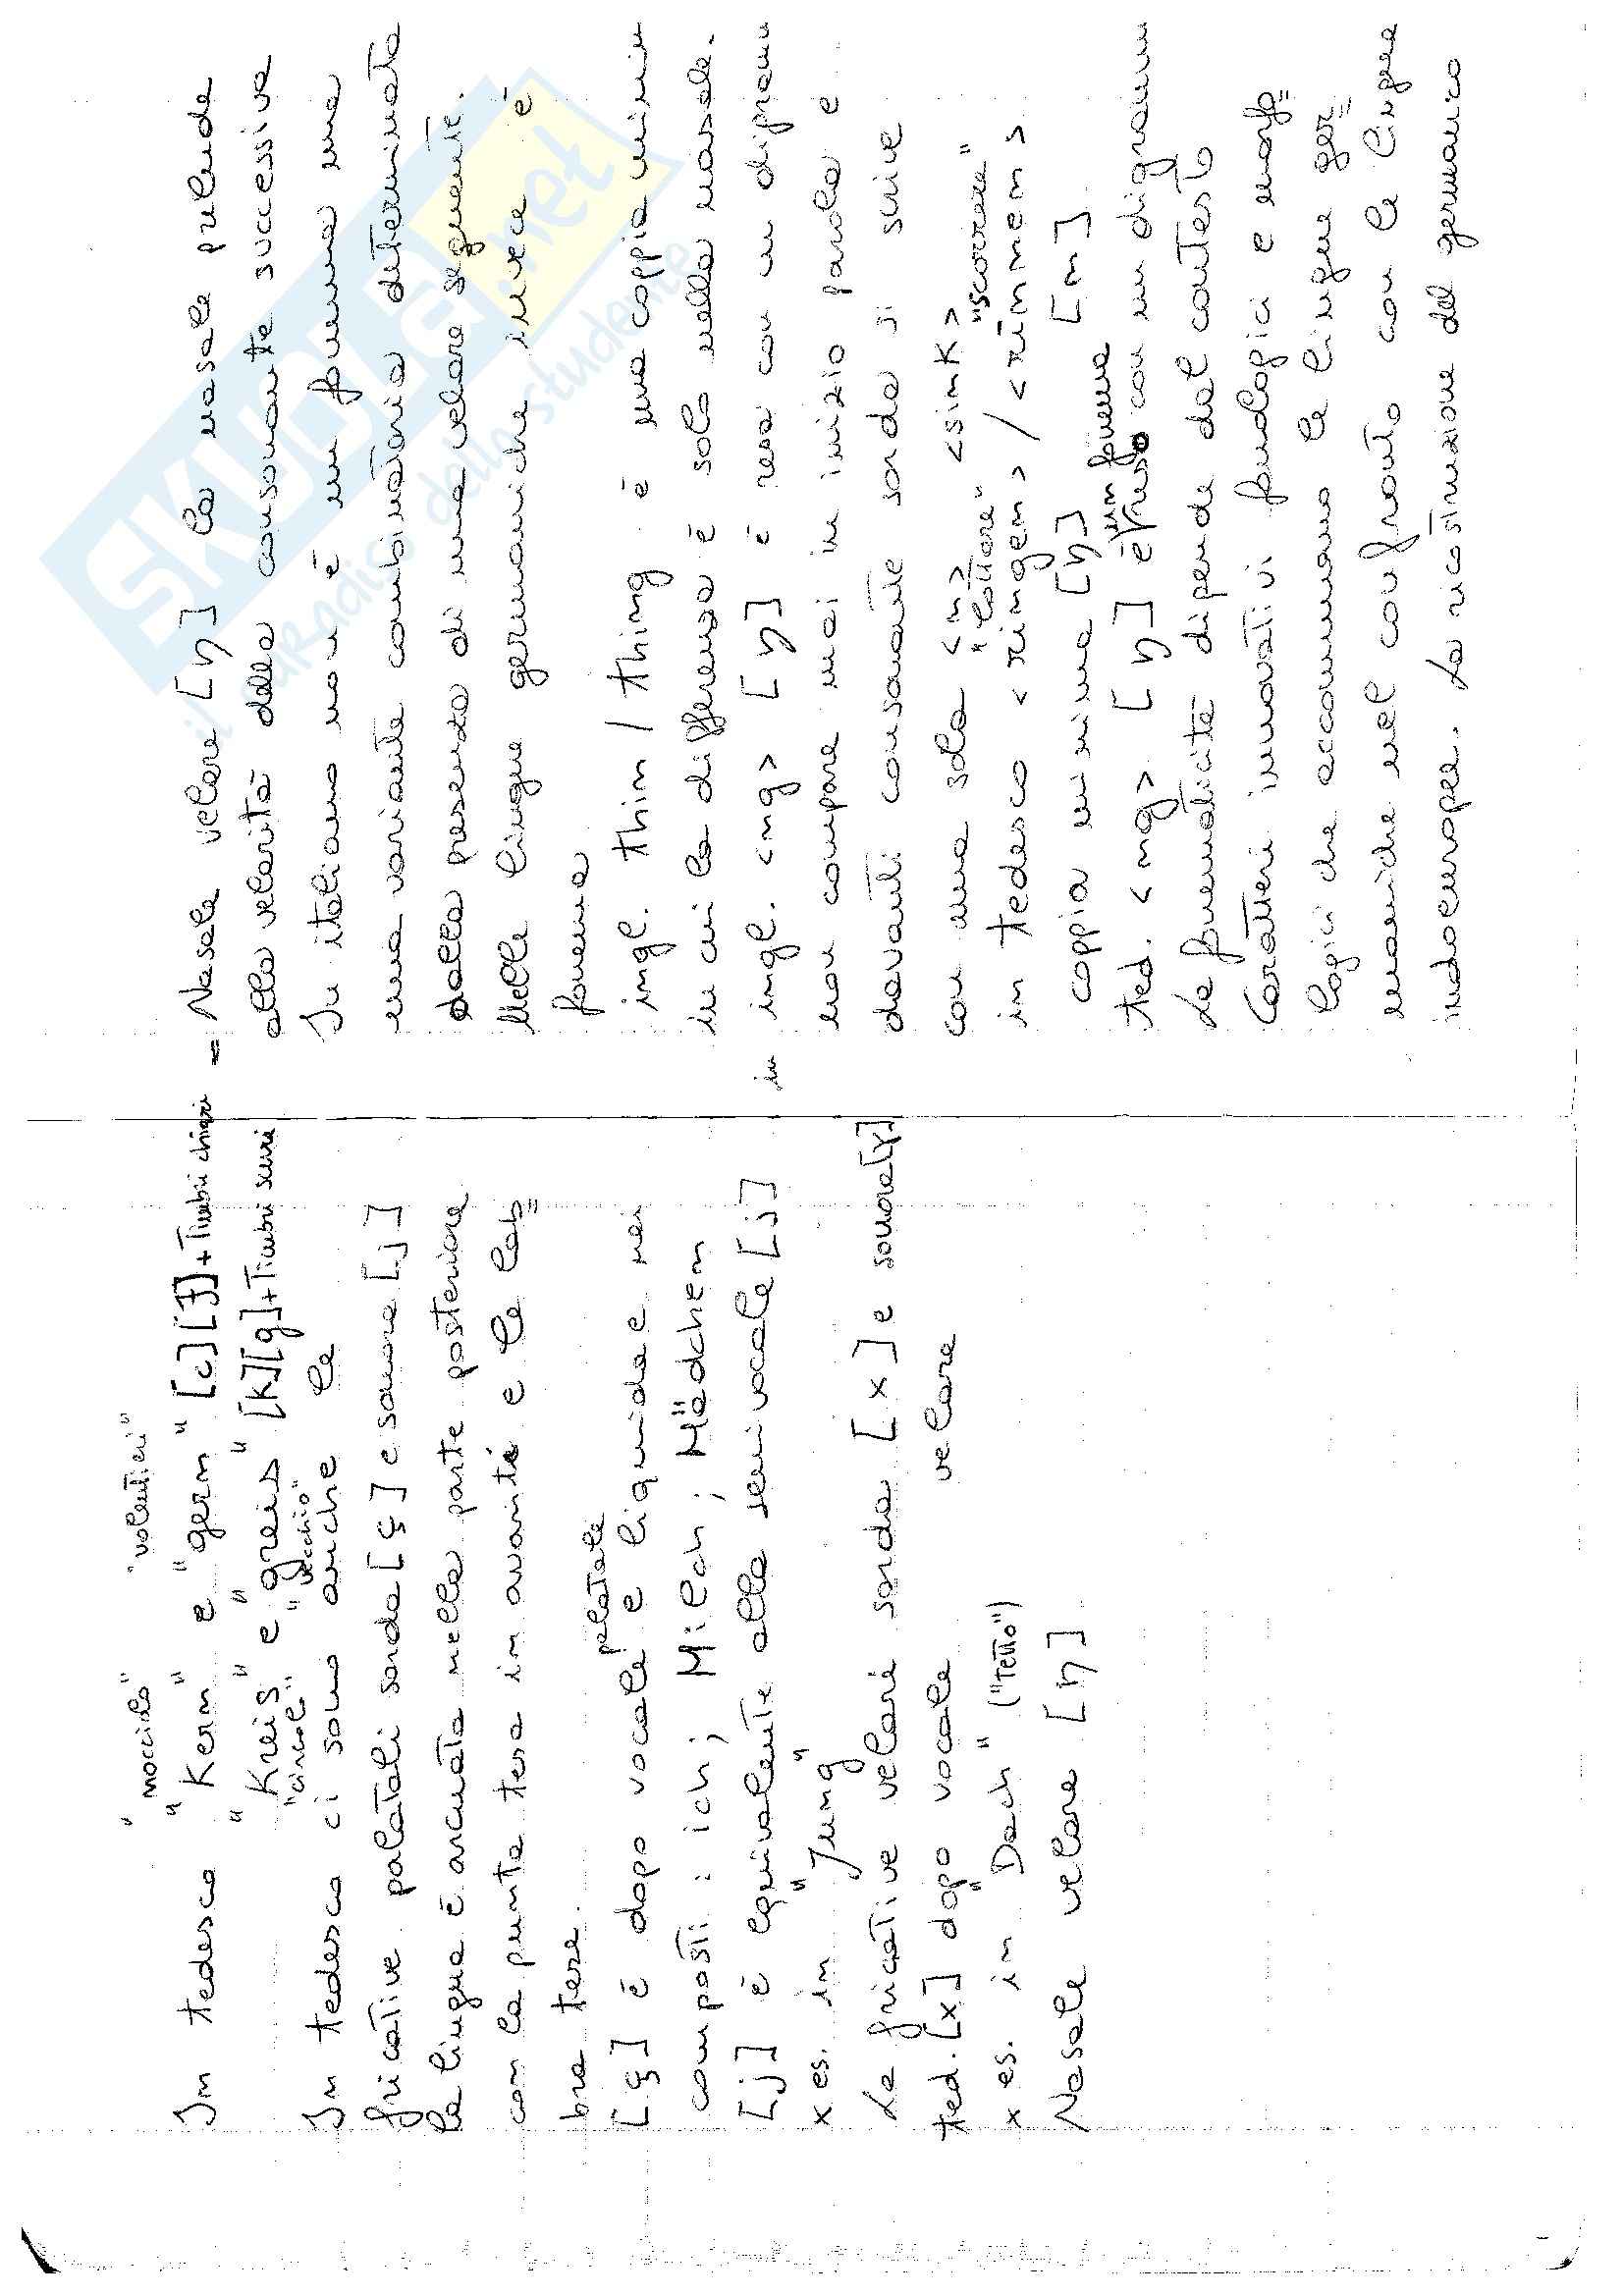 "nocciolo" "volentieri"
In tedesco "Kern" e "gern" [c][ɟ]+Timbri chiari
"Kreis" e "greis" [k][g]+Timbri scuri
"circolo" "vecchio"
In tedesco ci sono anche le
fricative palatali sorda [ç] e sonora [j]
la lingua è arcuata nella parte posteriore
con la punta tesa in avanti e le lab=
bra tese.
palatale
[ç] è dopo vocale e liquida e nei
composti: ich; Milch; Mädchen
[j] è equivalente alla semivocale [j]
x es. in "Jung"
Le fricative velari sorda [x] e sonora [ɣ]
ted. [x] dopo vocale velare
x es. in "Dach" ("tetto")
Nasale velare [ŋ]
= Nasale velare [ŋ] la nasale prelude
alla velarità della consonante successiva
In italiano non è un fonema ma
una variante combinatoria determinata
dalla presenza di una velare seguente.
Nelle lingue germaniche invece è
fonema
ingl. thin / thing è una coppia minim
in cui la differenza è solo nella nasale.
in ingl. <ng> [ŋ] è resa con un digramm
non compare mai in inizio parola e
davanti consonante sorda si scrive
con una sola <n> <sink>
"lottare" "scorrere"
in tedesco <ringen> / <rinnen>
coppia minima [ŋ] [n]
un fonema
ted. <ng> [ŋ] è reso con un digramm
La fonematicità dipende dal contesto
Caratteri innovativi fonologici e morfo=
logici che accomunano le lingue ger=
maniche nel confronto con le lingue
indoeuropee. La ricostruzione del germanico
SKUOLA.net
il paradiso dello studente